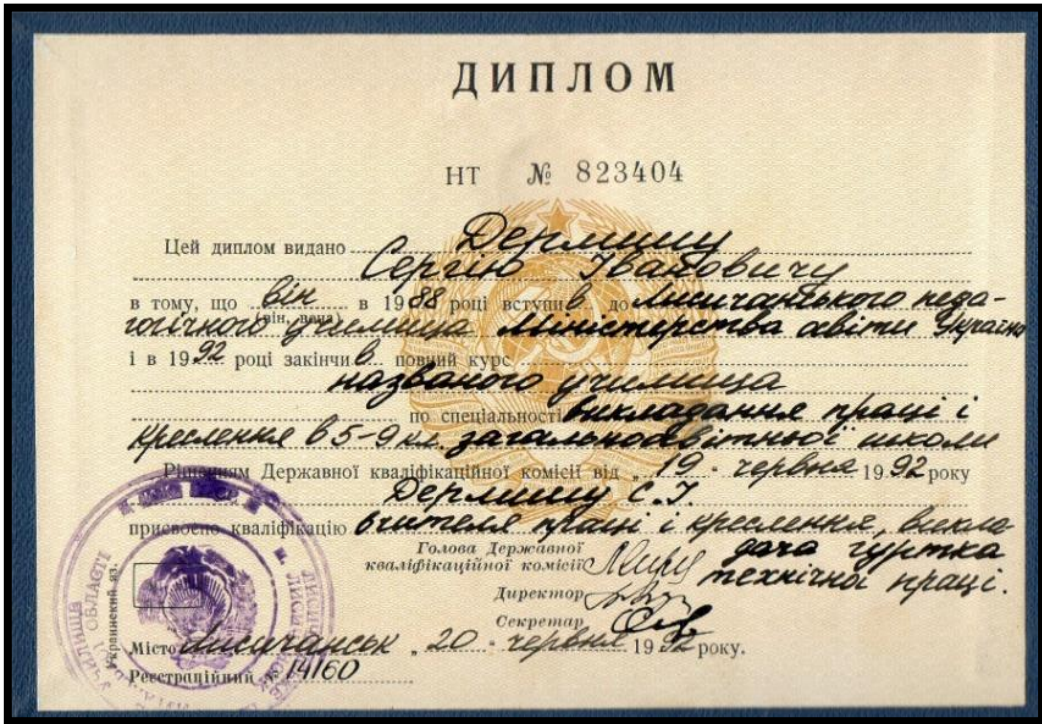 ДИПЛОМ
НТ № 823404
Цей диплом видано Дермишу
Сергію Івановичу
в тому, що він в 1988 році вступив до Лисичанського педа-
(він, вона)
гогічного училища Міністерства освіти Україна
і в 1992 році закінчив повний курс
названого училища
по спеціальності викладання праці і
креслення в 5-9 кл. загальноосвітньої школи
Рішенням Державної кваліфікаційної комісії від „19" червня 1992 року
Дермишу С.І.
присвоєно кваліфікацію вчителя праці і креслення, викла-
дача гуртка
технічної праці.
Голова Державної
кваліфікаційної комісії
Директор
Секретар
Місто Лисичанськ „20" червня 1992 року.
Реєстраційний № 14160
Украинский яз.
УЧИЛИЩА
ОБЛАСТІ